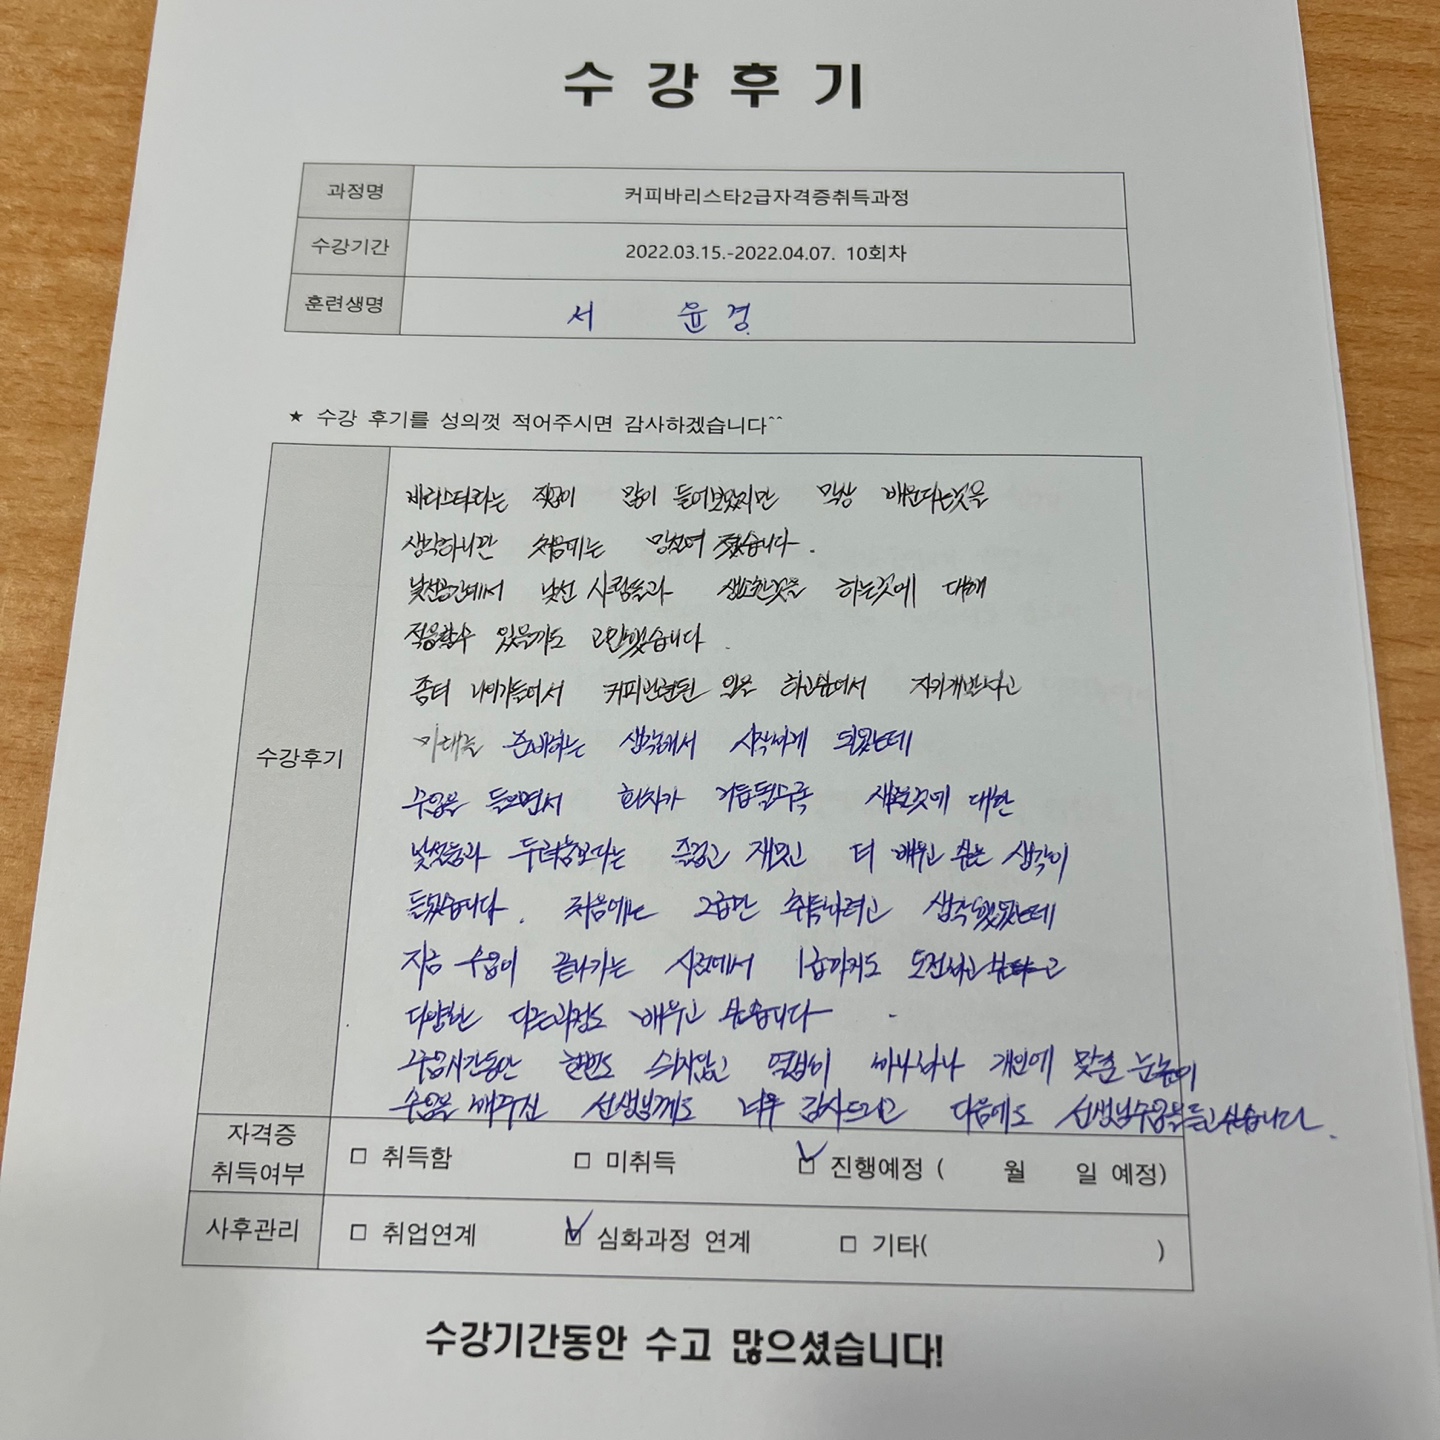 수 강 후 기
과정명 커피바리스타2급자격증취득과정
수강기간 2022.03.15.-2022.04.07. 10회차
훈련생명 서 윤 경
★ 수강 후기를 성의껏 적어주시면 감사하겠습니다^^
수강후기
바리스타라는 직업이 많이 들어보았지만 막상 배운다는것을
생각하니깐 처음에는 망설여 졌습니다.
낯선공간에서 낯선 사람들과 생소한것을 하는것에 대해
적응할수 있을까도 고민했습니다.
좀더 나이가들어서 커피관련된 일을 하고싶어서 자기개발하고
미래를 준비하는 생각해서 시작하게 되었는데
수업을 들으면서 회차가 거듭될수록 새로운것에 대한
낯설음과 두려움보다는 즐겁고 재밌고 더 배우고 싶은 생각이
들었습니다. 처음에는 2급만 취득하려고 생각했었는데
지금 수업이 끝나가는 시점에서 1급까지도 도전하고
다양한 다른과정도 배우고 싶습니다.
수업시간동안 한번도 쉬지않고 열심히 하나하나 개인에 맞춘 눈높이
수업을 해주신 선생님께도 너무 감사드리고 다음에도 선생님수업을듣고싶습니다.
자격증
취득여부 □ 취득함 □ 미취득 ☑ 진행예정 ( 월 일 예정)
사후관리 □ 취업연계 ☑ 심화과정 연계 □ 기타( )
수강기간동안 수고 많으셨습니다!